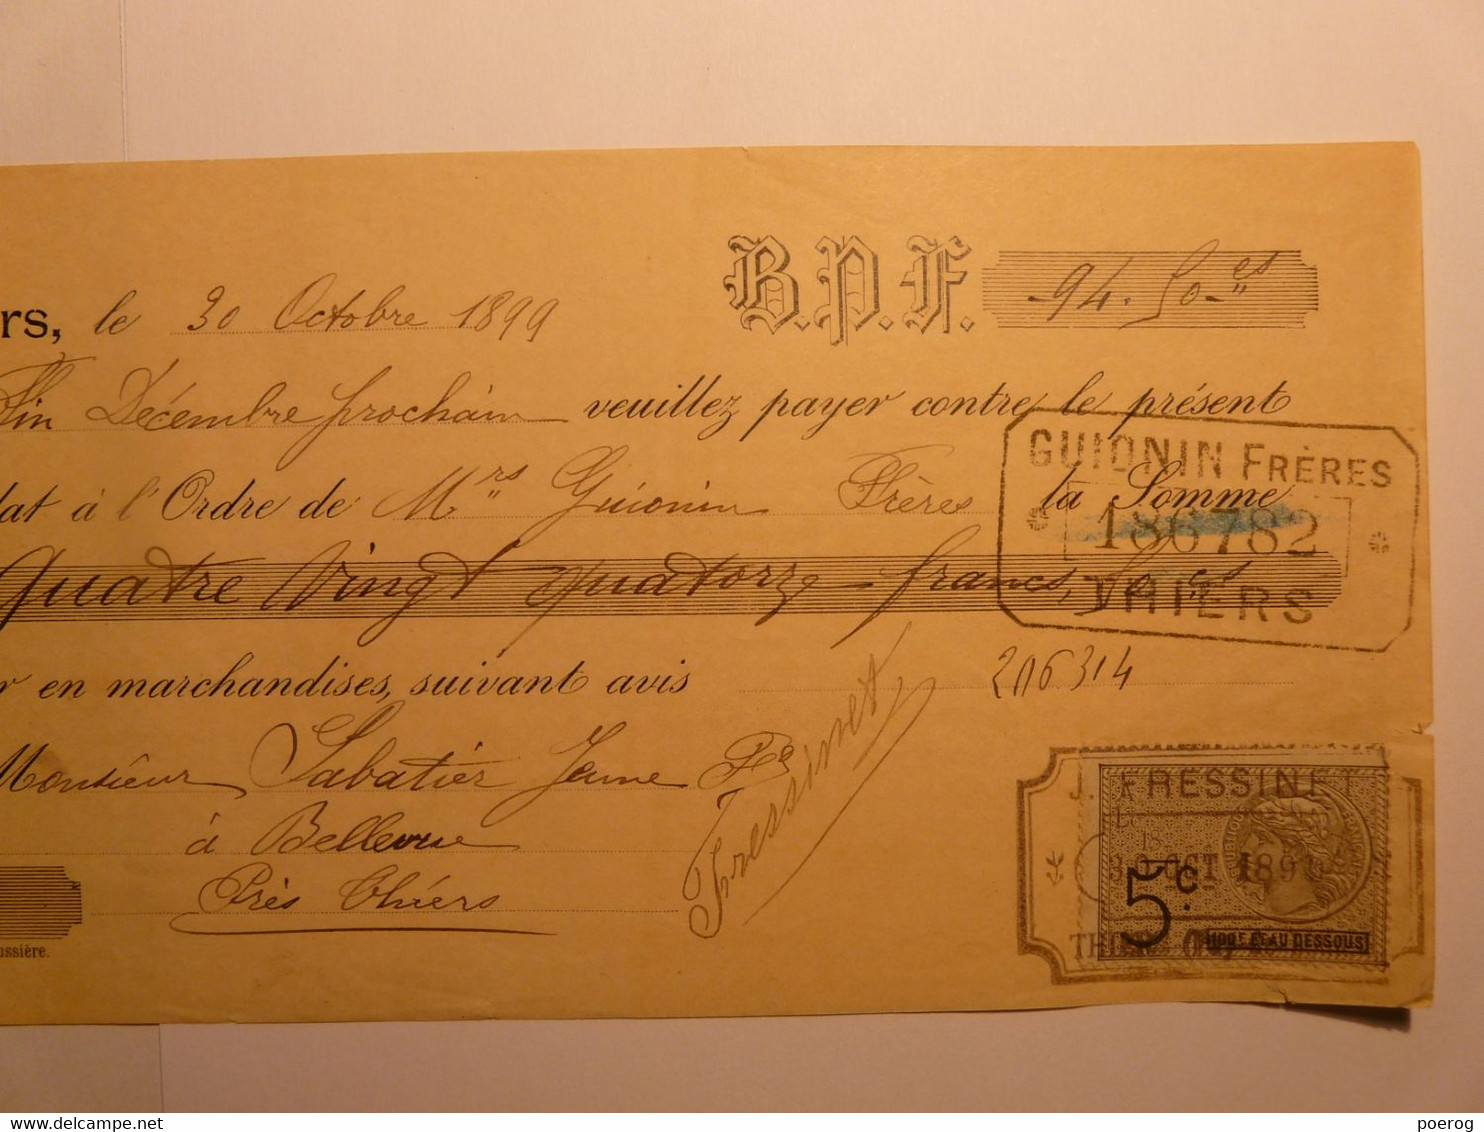 B.P.F. 94.50 ces
rs, le 30 Octobre 1899
Fin Décembre prochain veuillez payer contre le présent
dat à l'Ordre de Mrs Guionin Frères la Somme
Quatre Vingt quatorze francs, 50 ces
r en marchandises, suivant avis
206314
Monsieur Sabatier Jeune
à Bellevue
Près Thiers
Fressinet
ussière.
GUIONIN FRÈRES
186782
THIERS
J. FRESSINET
30 OCT 189
5c.
100F ET AU DESSOUS
www.delcampe.net
poerog